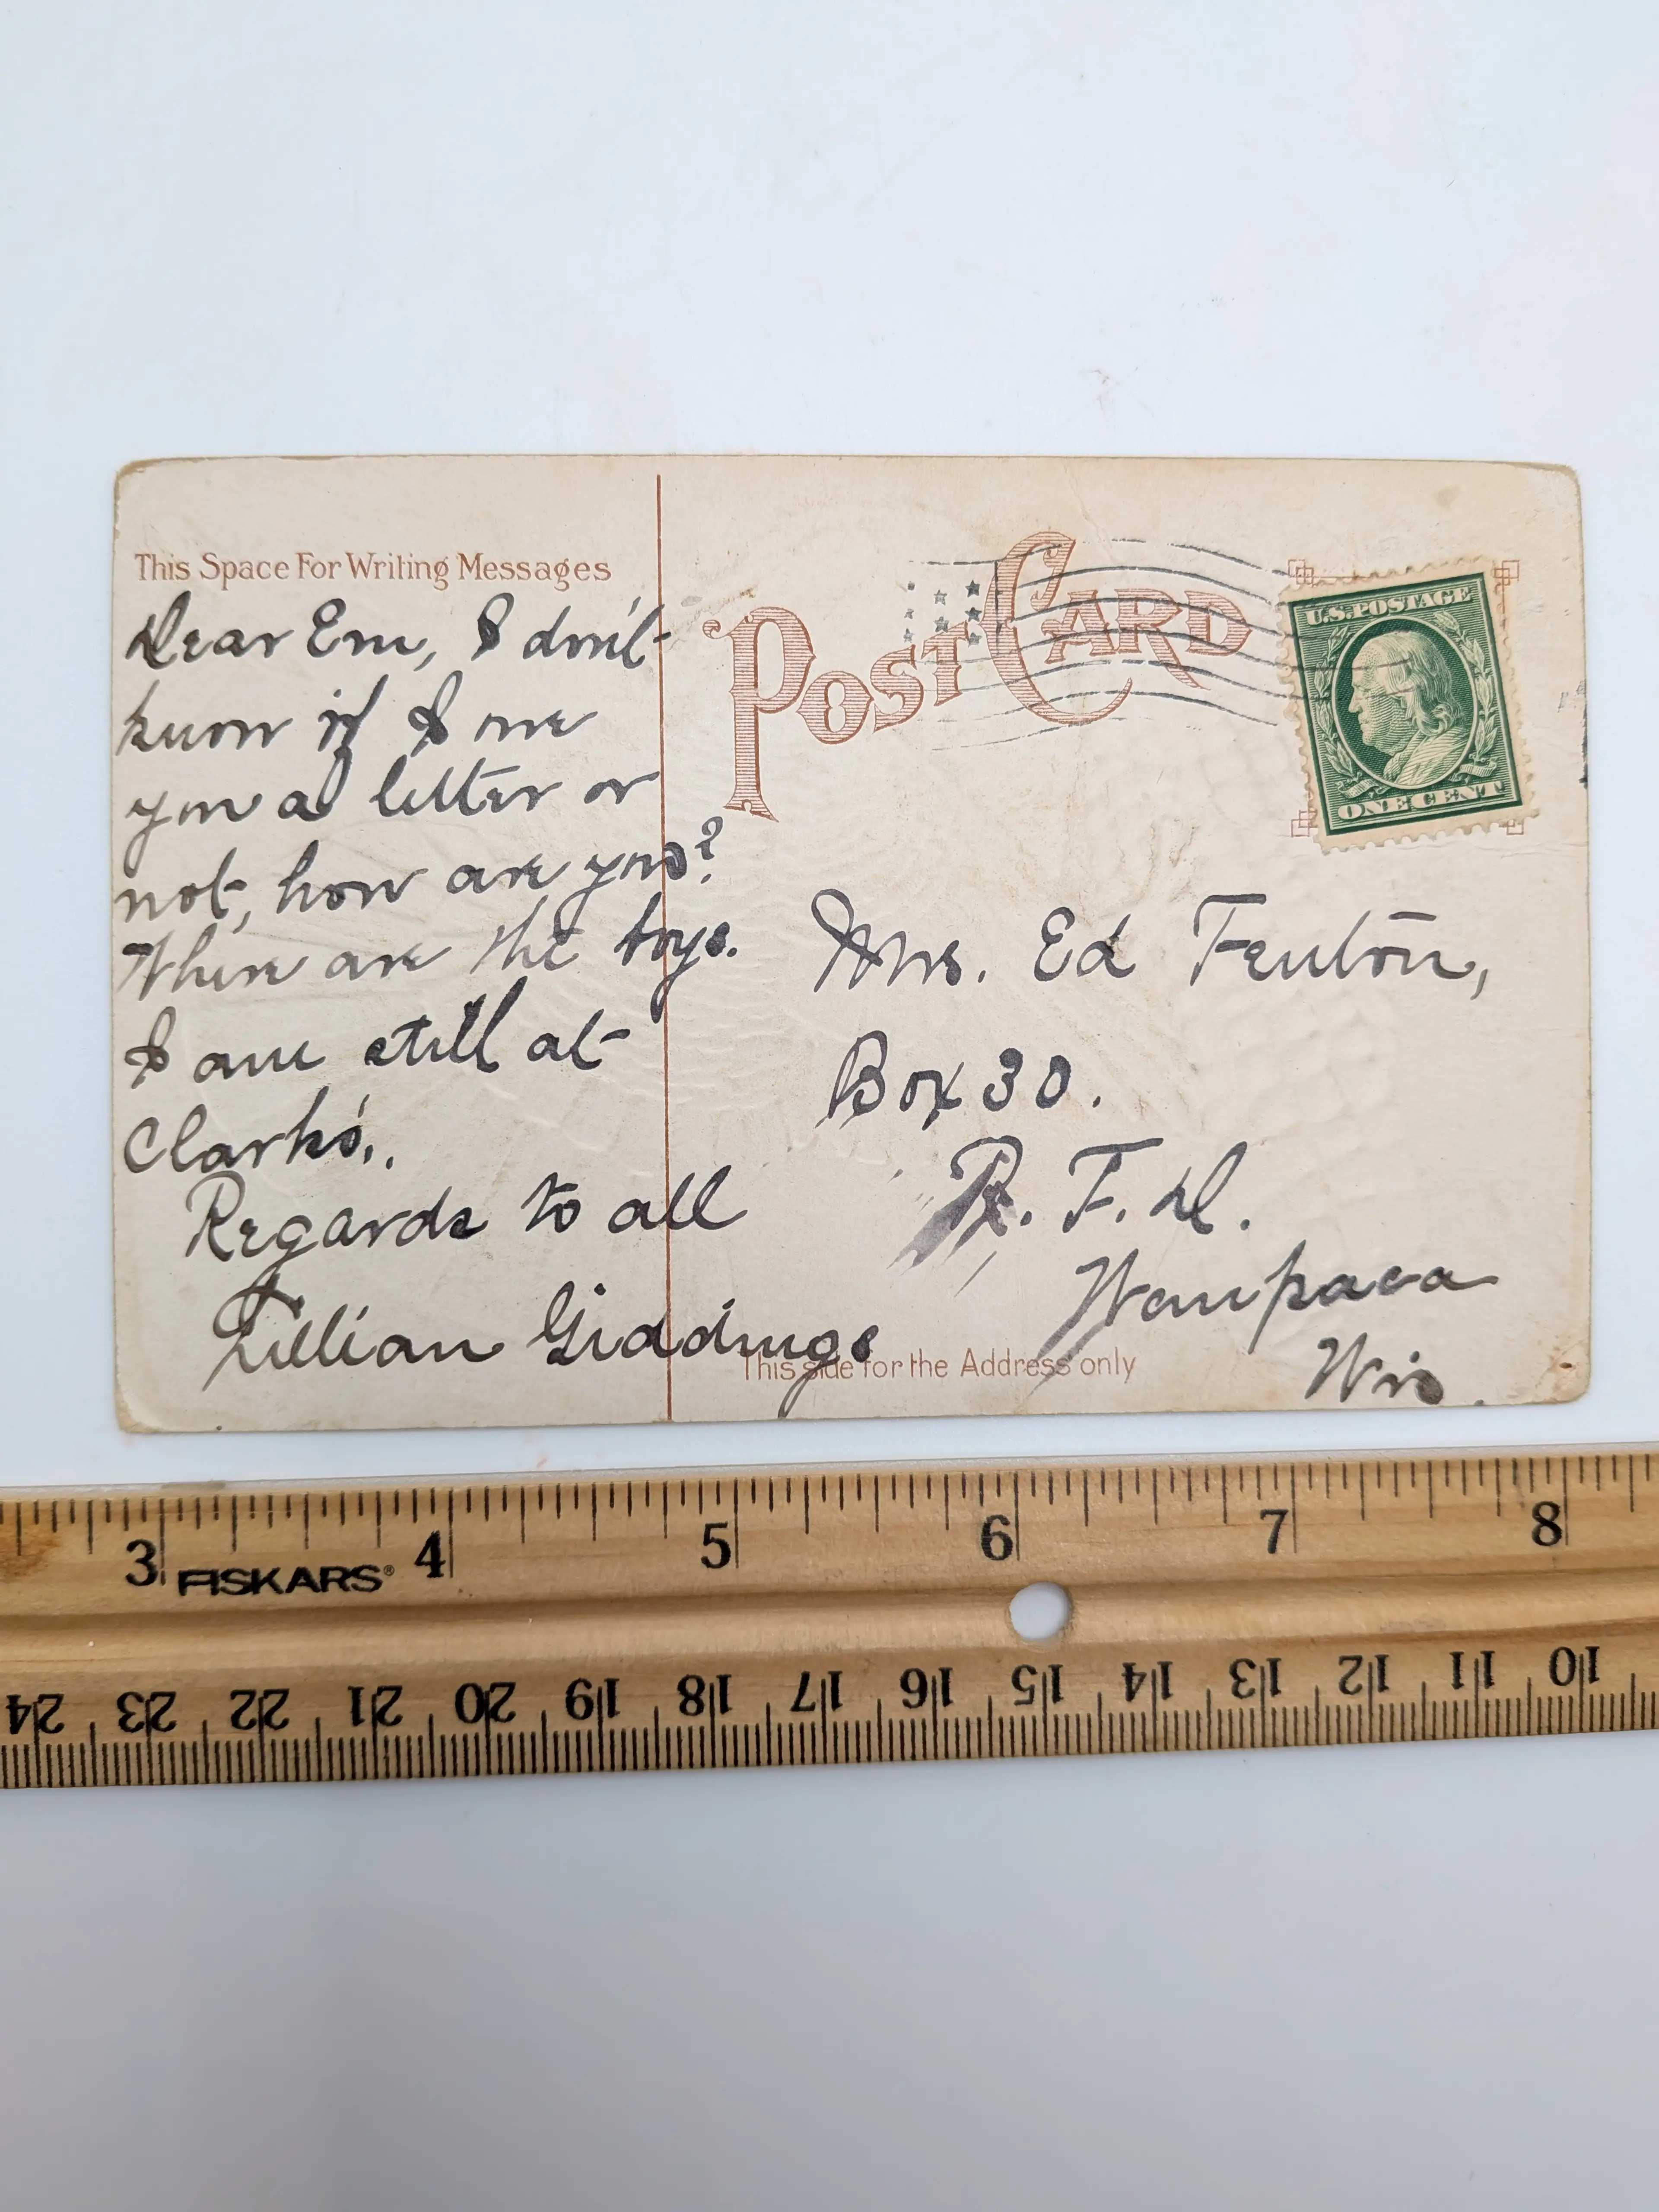 This Space For Writing Messages
Dear Em, I don't
know if I owe
you a letter or
not, how are you?
Where are the boys.
I am still at
Clark's.
Regards to all
Lillian Giddings
POST CARD
U.S. POSTAGE
ONE CENT
Mrs. Ed Fenton,
Box 30.
R. F. D.
Waupaca
Wis.
This side for the Address only
3 4 5 6 7 8
FISKARS®
24 23 22 21 20 19 18 17 16 15 14 13 12 11 10